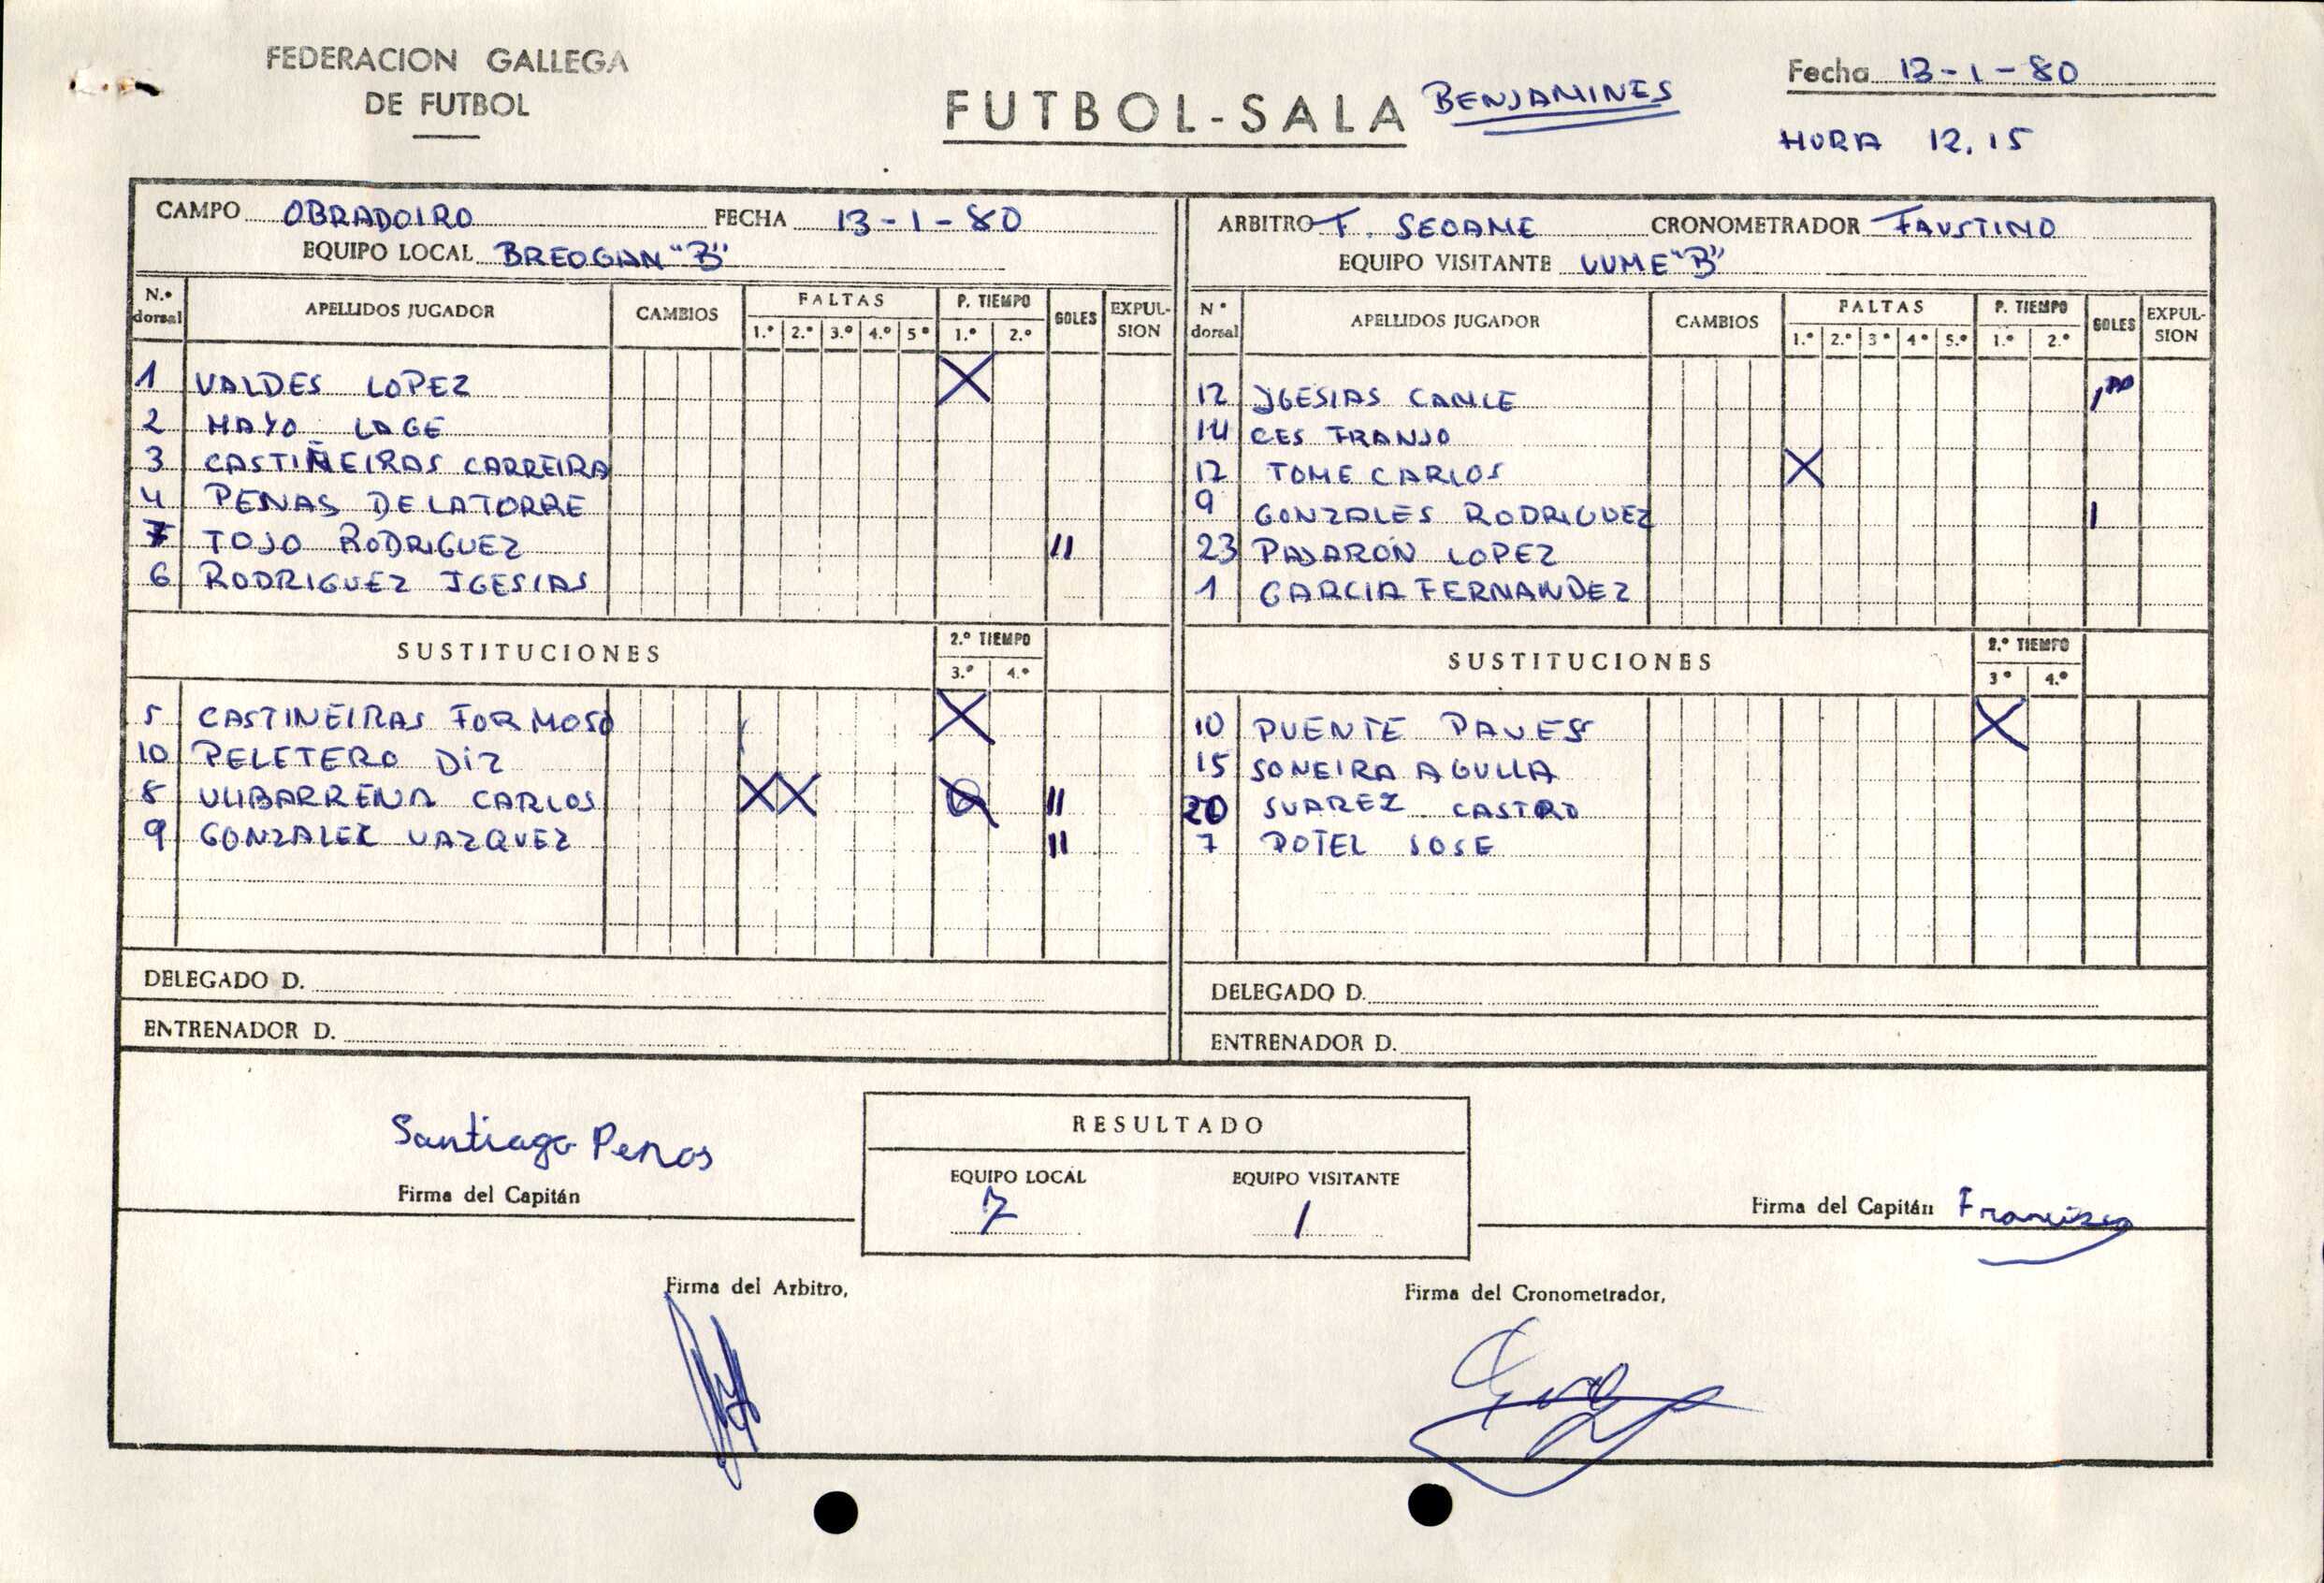 FEDERACION GALLEGA
DE FUTBOL
FUTBOL-SALA BENJAMINES
Fecha 13-1-80
HORA 12,15
CAMPO OBRADOIRO FECHA 13-1-80
EQUIPO LOCAL BREOGAN "B"
ARBITRO F. SEOANE CRONOMETRADOR FAUSTINO
EQUIPO VISITANTE UUME "B"
N.º dorsal APELLIDOS JUGADOR CAMBIOS FALTAS 1.º 2.º 3.º 4.º 5º P. TIEMPO 1.º 2.º GOLES EXPULSION
1 VALDES LOPEZ X
2 MAYO LAGE
3 CASTIÑEIRAS CARREIRA
4 PENAS DE LATORRE
7 TOJO RODRIGUEZ II
6 RODRIGUEZ IGESIAS
SUSTITUCIONES 2.º TIEMPO 3.º 4.º
5 CASTINEIRAS FORMOSO X
10 PELETERO DIZ
8 ULIBARRENA CARLOS XX II
9 GONZALEZ VAZQUEZ II
DELEGADO D.
ENTRENADOR D.
Nº dorsal APELLIDOS JUGADOR CAMBIOS FALTAS 1.º 2.º 3º 4º 5.º P. TIEMPO 1.º 2.º GOLES EXPULSION
12 IGESIAS CANLE
14 CES FRANJO
17 TOME CARLOS X
9 GONZALES RODRIGUEZ I
23 PAJARON LOPEZ
1 GARCIA FERNANDEZ
SUSTITUCIONES 2.º TIEMPO 3º 4.º
10 PUENTE X
15 SONEIRA AGULLA
20 SUAREZ CASTRO
7 POTEL JOSE
DELEGADO D.
ENTRENADOR D.
Santiago Penas
Firma del Capitán
RESULTADO
EQUIPO LOCAL EQUIPO VISITANTE
7 1
Firma del Capitán Francisco
Firma del Arbitro,
Firma del Cronometrador,